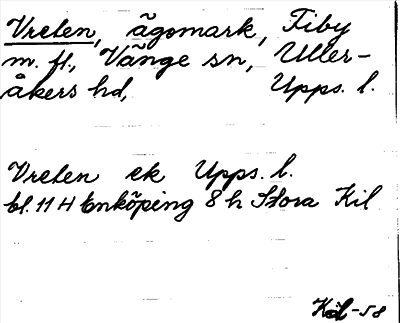 Vreten, ägomark, Fiby
m. fl., Vänge sn, Uller-
åkers hd, Upps. l.
Vreten ek Upps. l.
bl. 11 H Enköping 8 h Stora Kil